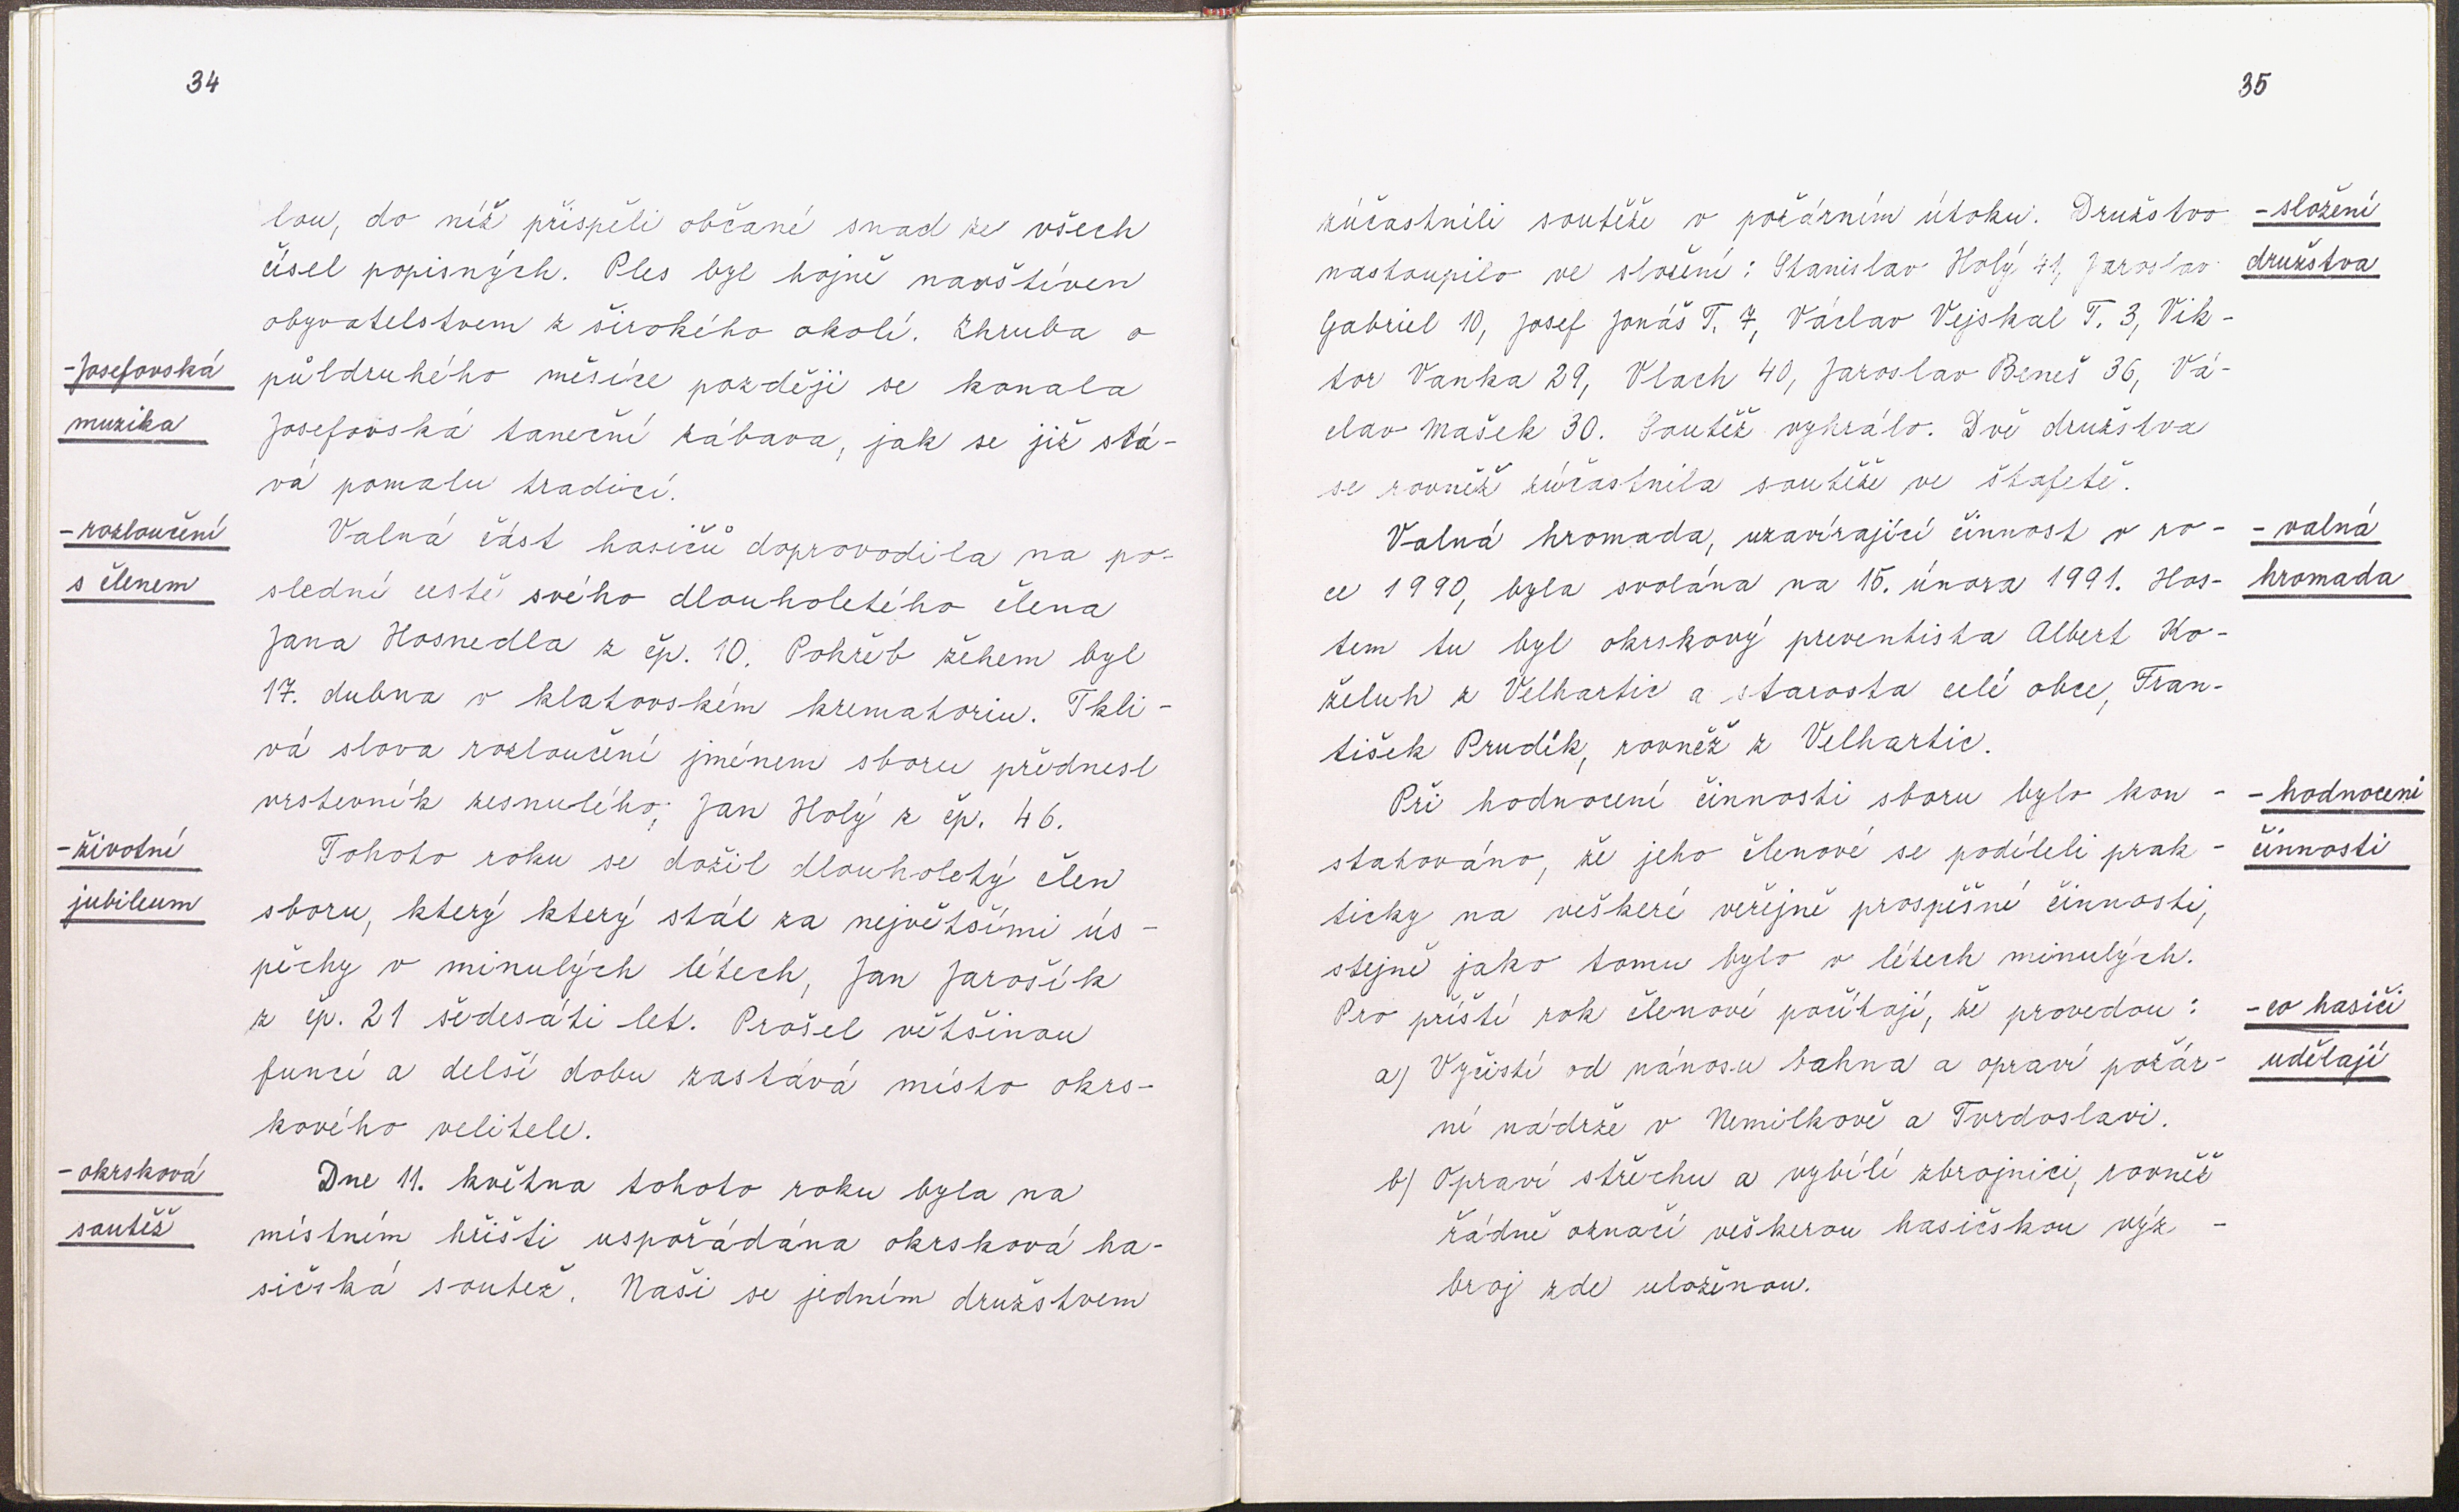 34
lou, do níž přispěli občané snad ze všech
čísel popisných. Ples byl hojně navštíven
obyvatelstvem z širokého okolí. Zhruba o
-Josefovská
půldruhého měsíce později se konala
muzika
Josefovská taneční zábava, jak se již stá-
vá pomalu tradicí.
-rozloučení
Valná část hasičů doprovodila na po-
s členem
slední cestě svého dlouholetého člena
Jana Hosnedla z čp. 10. Pohřeb žehem byl
17. dubna v klatovském krematoriu. Tkli-
vá slova rozloučení jménem sboru přednesl
vrstevník zesnulého, Jan Holý z čp. 46.
-životní
Tohoto roku se dožil dlouholetý člen
jubileum
sboru, který který stál za největšími ús-
pěchy v minulých létech, Jan Jarošík
z čp. 21 šedesáti let. Prošel většinou
funcí a delší dobu zastává místo okrs-
kového velitele.
-okrsková
Dne 11. května tohoto roku byla na
soutěž
místním hřišti uspořádána okrsková ha-
sičská soutež. Naši se jedním družstvem
35
zúčastnili soutěže v požárním útoku. Družstvo
-složení
nastoupilo ve složení: Stanislav Holý 41, Jaroslav
družstva
Gabriel 10, Josef Jonáš T. 7, Václav Vejskal T. 3, Vik-
tor Vanka 29, Vlach 40, Jaroslav Beneš 36, Vá-
clav Mašek 30. Soutěž vyhrálo. Dvě družstva
se rovněž zúčastnila soutěže ve štafetě.
Valná hromada, uzavírající činnost v ro-
-valná
ce 1990, byla svolána na 15. února 1991. Hos-
hromada
tem tu byl okrskový preventista Albert Ko-
želuh z Velhartic a starosta celé obce, Fran-
tišek Prudík, rovněž z Velhartic.
Při hodnocení činnosti sboru bylo kon-
-hodnocení
statováno, že jeho členové se podíleli prak-
činnosti
ticky na veškeré veřejně prospěšné činnosti,
stejně jako tomu bylo v létech minulých.
Pro příští rok členové počítají, že provedou:
-co hasiči
a) Vyčistí od nánosu bahna a opraví požár-
udělají
ní nádrže v Nemilkově a Tvrdoslavi.
b) Opraví střechu a vybílí zbrojnici, rovněž
řádně označí veškerou hasičskou výz-
broj zde uloženou.